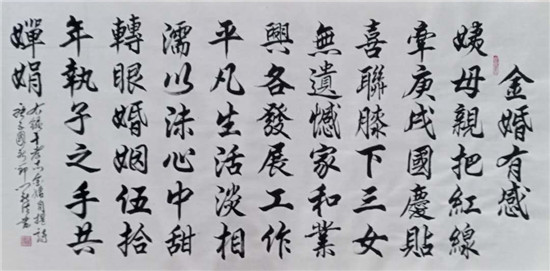 金婚有感
姨母親把紅線
牽庚戌國慶貼
喜聯膝下三女
無遺憾家和業
興各發展工作
平凡生活淡相
濡以沫心中甜
轉眼婚姻伍拾
年執子之手共
嬋娟
金婚自撰詩